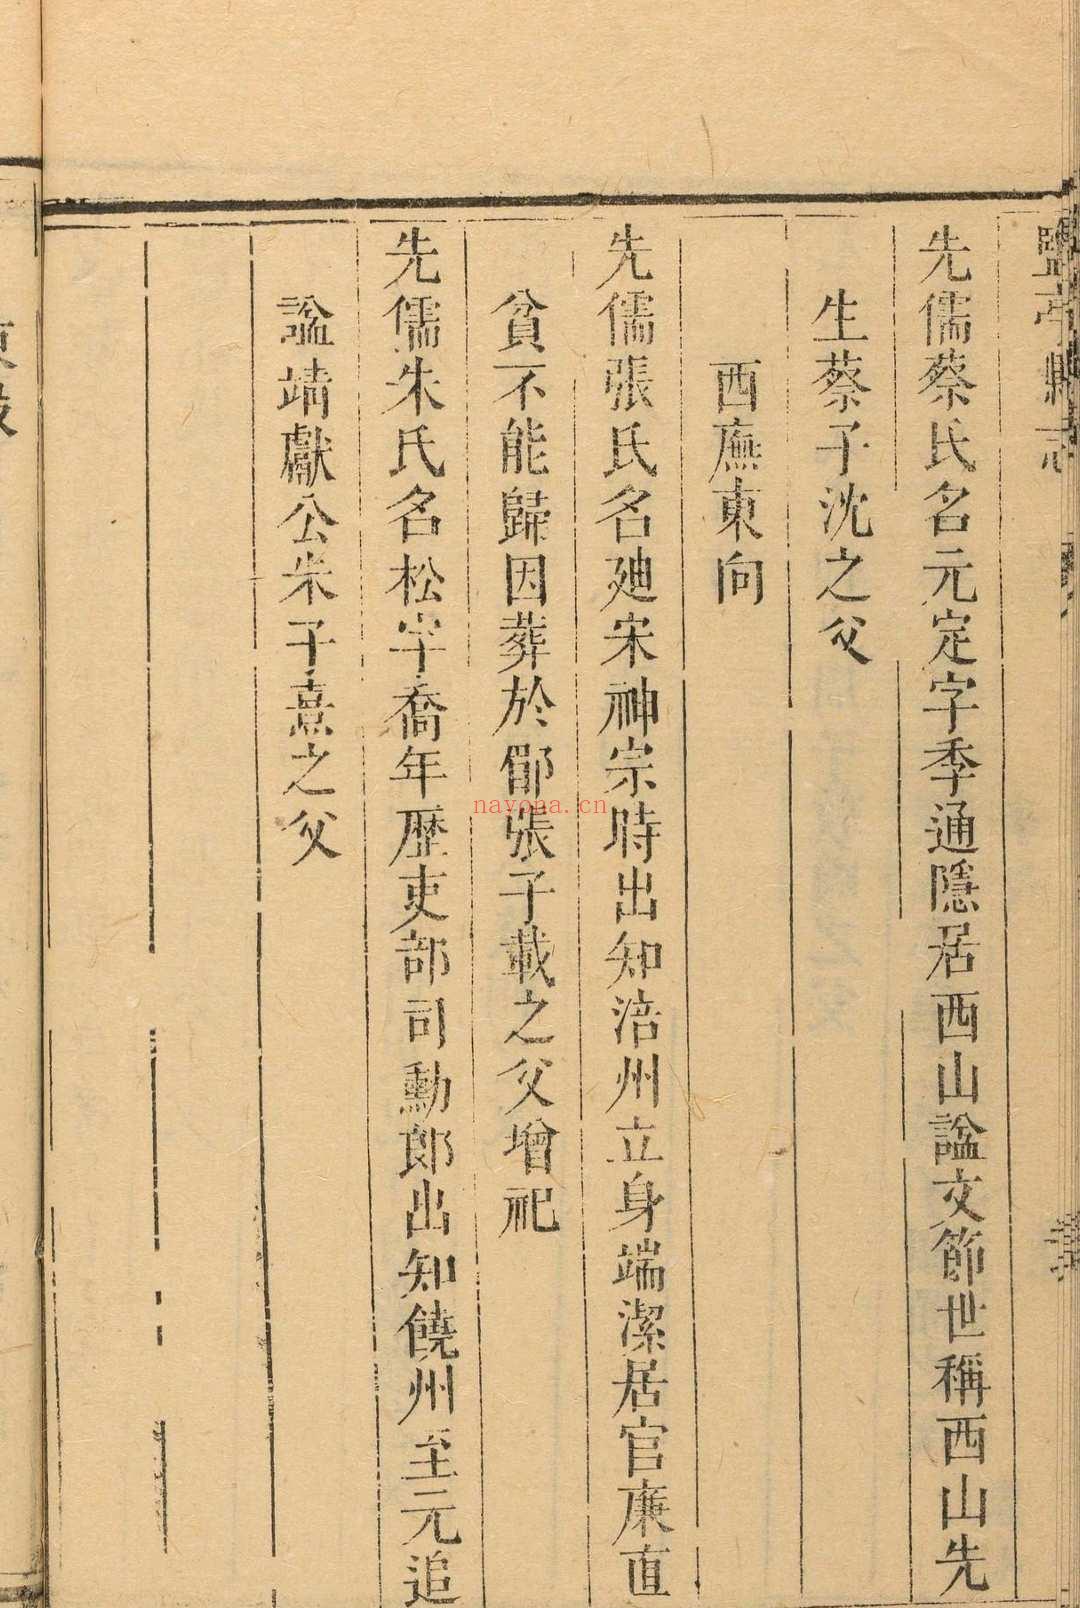 鹽亭縣志
先儒蔡氏名元定字季通隱居西山諡文節世稱西山先
生蔡子沈之父
西廡東向
先儒張氏名廸宋神宗時出知涪州立身端潔居官廉直
貧不能歸因葬於郿張子載之父增祀
先儒朱氏名松字喬年歷吏部司勳郎出知饒州至元追
諡靖獻公朱子熹之父
nayona.cn